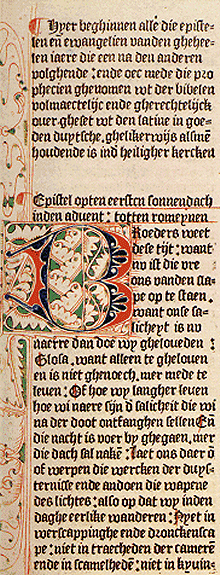 Hyer beghinnen alle die episte-
len en ewangelien vanden ghehe-
len iaere die een na den anderen
volghende : ende oec mede die pro-
phecien ghenomen wt der bibelen
volmaectelijc ende gherechtelijck
ouer gheset wt den latine in goe-
den duytsche, ghelikerwijs alsmen
houdende is ind heiligher kercken
Epistel opten eersten sonnendach
inden aduent: totten romeynen
BRoeders weet
dese tijt: want
nv ist die vre
ons vanden sla-
pe op te staen.
want onse sa-
licheyt is nv
naerre dan doe wy gheloueden
Glosa. want alleen te ghelouen
en is niet ghenoech. mer mede te
leuen: Of hoe wy langher leuen
hoe wi naere sijn d salicheit die wi
na der doot ontfanghen sellen En
die nacht is voer by ghegaen, mer
die dach sal naken: Laet ons daer o
of werpen die wercken der duys-
ternisse ende andoen die wapene
des lichtes: also op dat wy inden
daghe eerlike wanderen: Nyet in
werscappinghe ende dronckensca
pe: niet in traecheden der camere
ende in scamelheden: niet in kyuin-